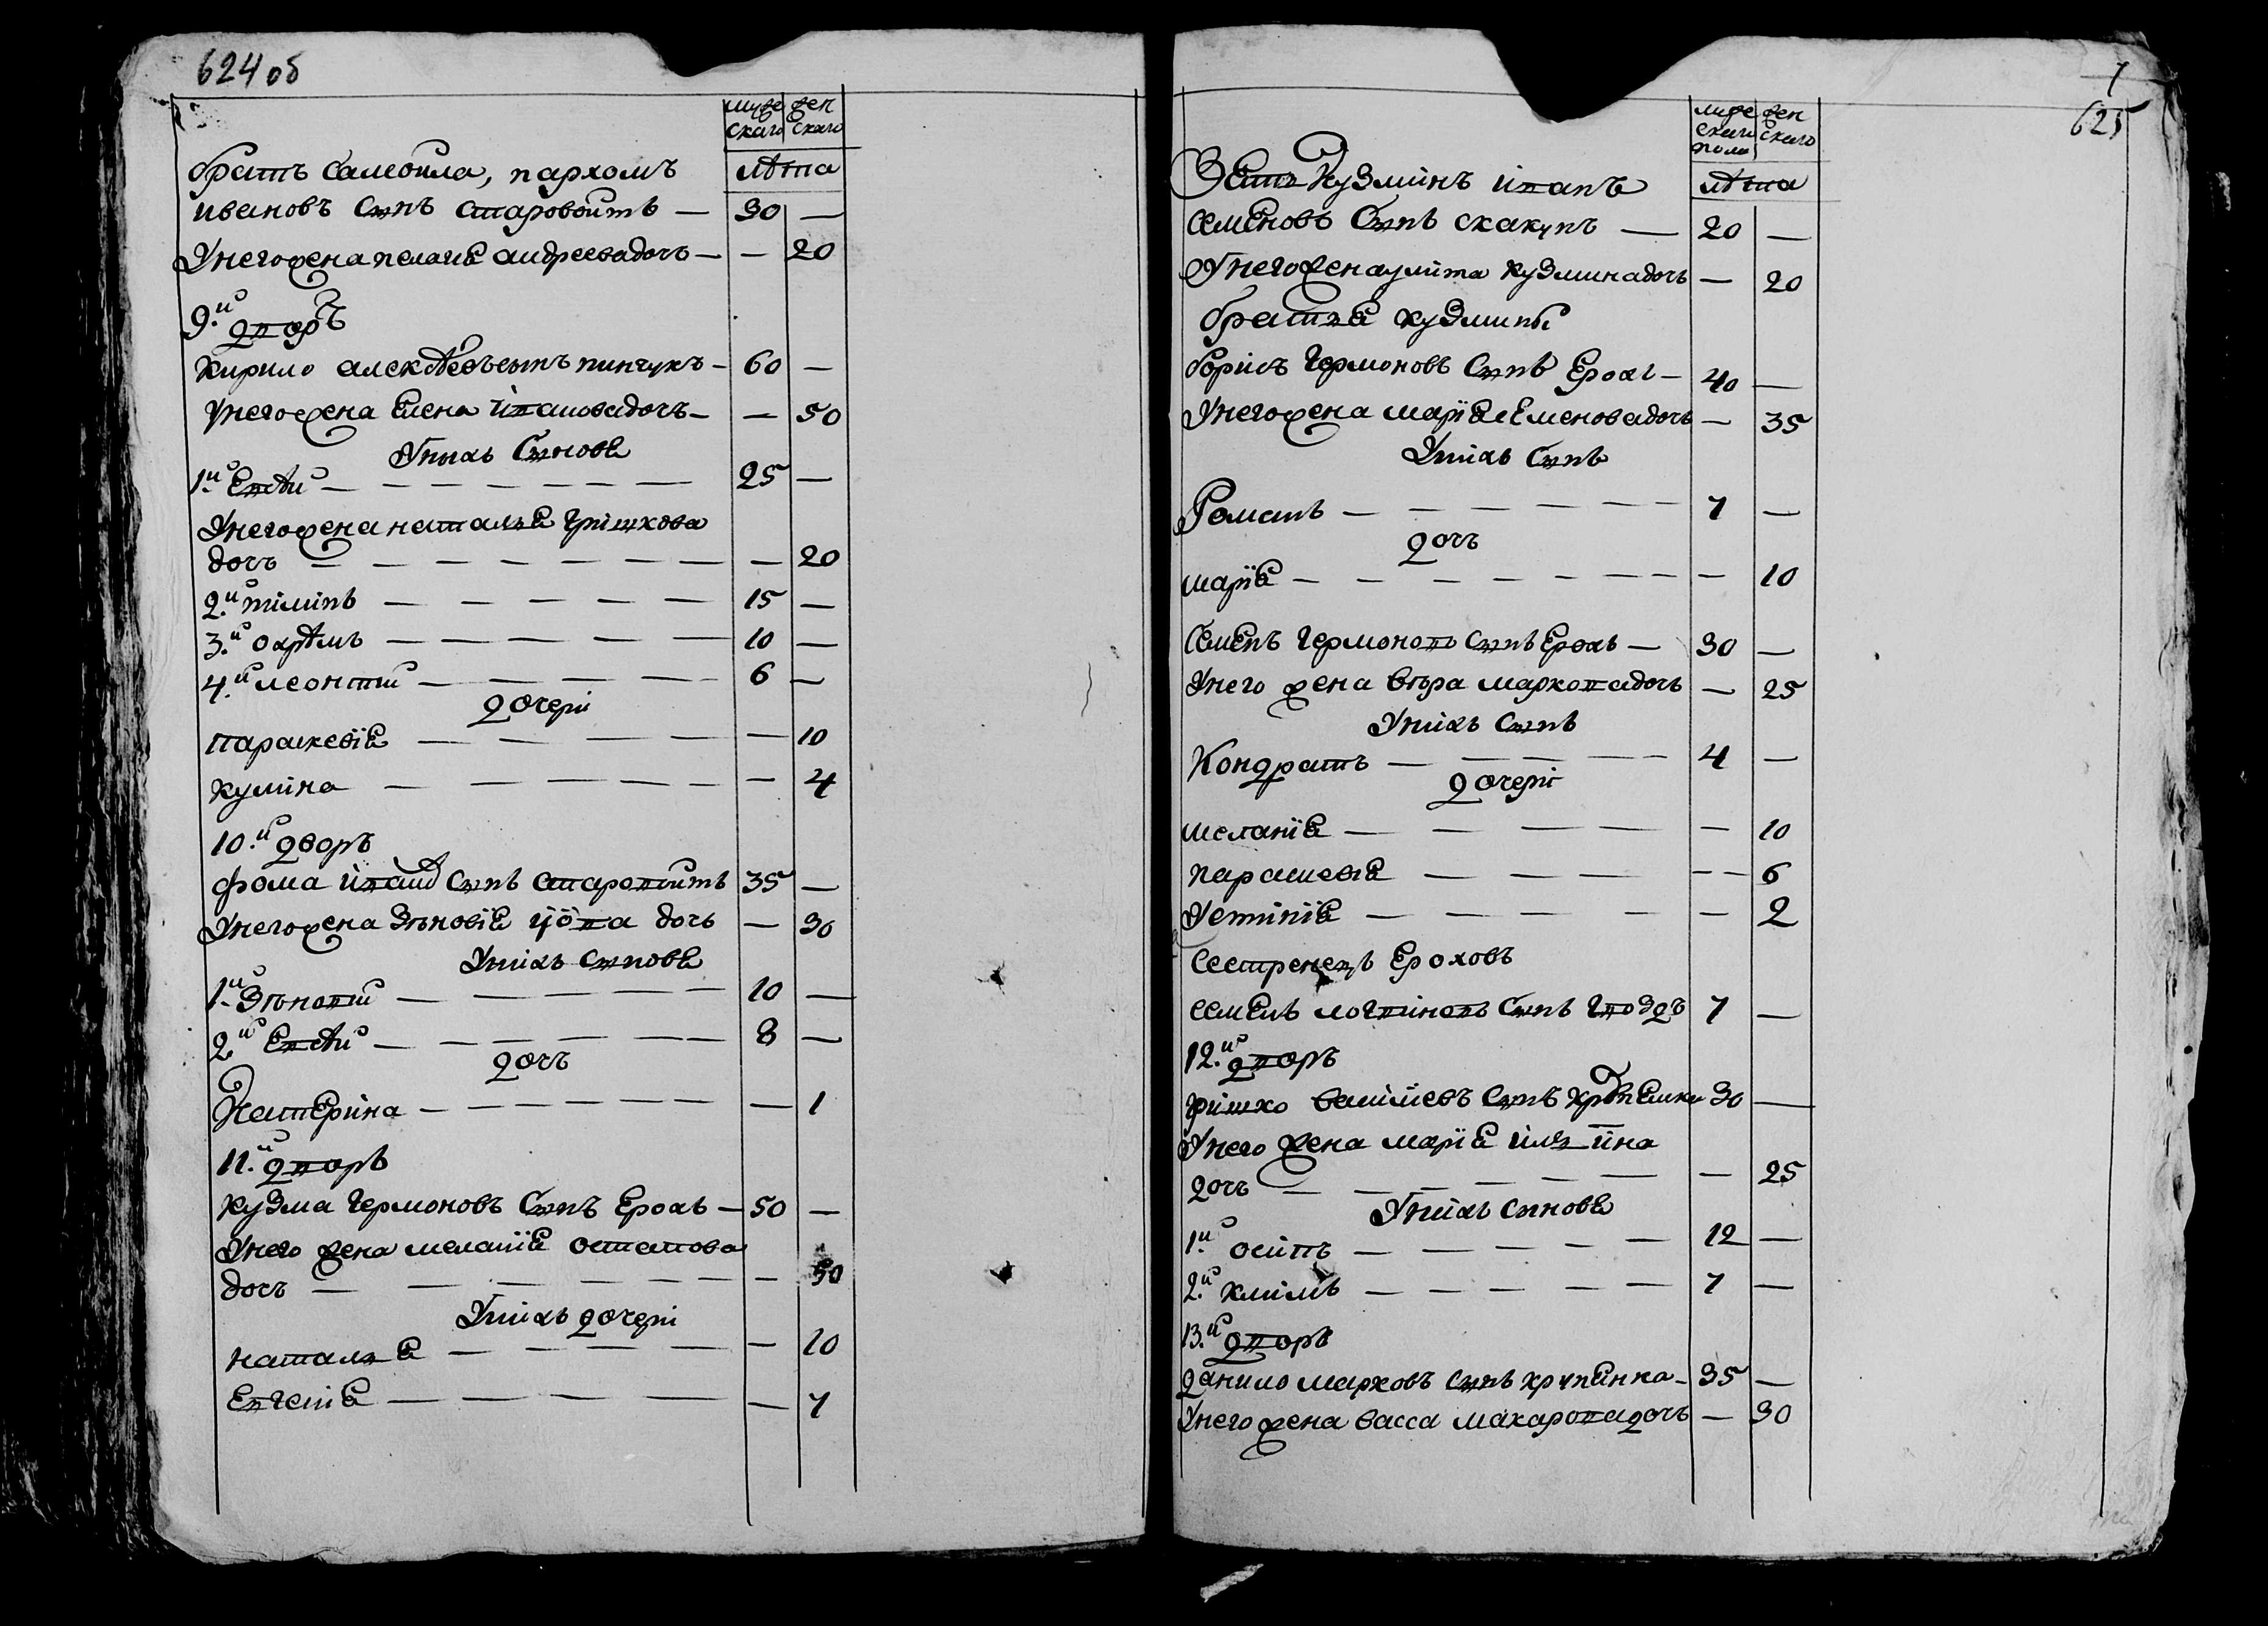 624 об
мужескаго женскаго
лѣта
братъ Самойла, пархомъ
ивановъ Сынъ старовойтъ — 30 —
Унего жена пелагіа андреева дочъ — — 20
9.й дворъ
Кирило алексѣевъ сынъ пинчукъ — 60 —
Унего жена Елена іванова дочъ — — 50
Унихъ Сыновѣ
1.й Евсѣй — 25 —
Унего жена наталъа грішкова
дочъ — — 20
2.й тімінъ — 15 —
3.й ѡарѣмъ — 10 —
4.й леонтий — 6 —
дочері
параскевіа — — 10
кулина — — 4
10.й дворъ
фома івановъ Сынъ старовойтъ 35 —
Унего жена Зѣновіа дочъ — 30
Уніхъ сыновѣ
1.й Зѣновий — 10 —
2.й Евсѣй — 8 —
дочъ
Катерина — — 1
11.й дворъ
Кузма Гермоновъ Сынъ Ерохъ — 50 —
Унего жена меланіа остапова
дочъ — — 50
Уніхъ дочері
наталъа — — 10
Евгеніа — — 7
7
625
мужескаго пола женскаго
лѣта
Зять Кузминъ іванъ
семеновъ Сынъ скакунъ — 20 —
Унего жена улита кузмина дочъ — 20
братъа кузмины
борисъ Гермоновъ Сынъ Ерохъ — 40 —
Унего жена маріа семенова дочъ — 35
Уніхъ Сынъ
Романъ — 7 —
дочъ
маріа — — 10
Семенъ Гермоновъ Сынъ Ерохъ — 30 —
Унего жена вѣра маркова дочъ — 25
Уніхъ Сынъ
Кондратъ — 4 —
дочері
меланіа — — 10
парасковіа — — 6
Устиніа — — 2
Сестренецъ Ероховъ
семенъ логвиновъ Сынъ гвоздъ 7 —
12.й дворъ
грішко василіевъ Сынъ 30 —
Унего жена маріа ілъина
дочъ — — 25
Уніхъ сыновѣ
1.й осипъ — 12 —
2.й климъ — 7 —
13.й дворъ
данило марковъ Сынъ хрупанка — 35 —
Унего жена васса макарова дочъ — 30